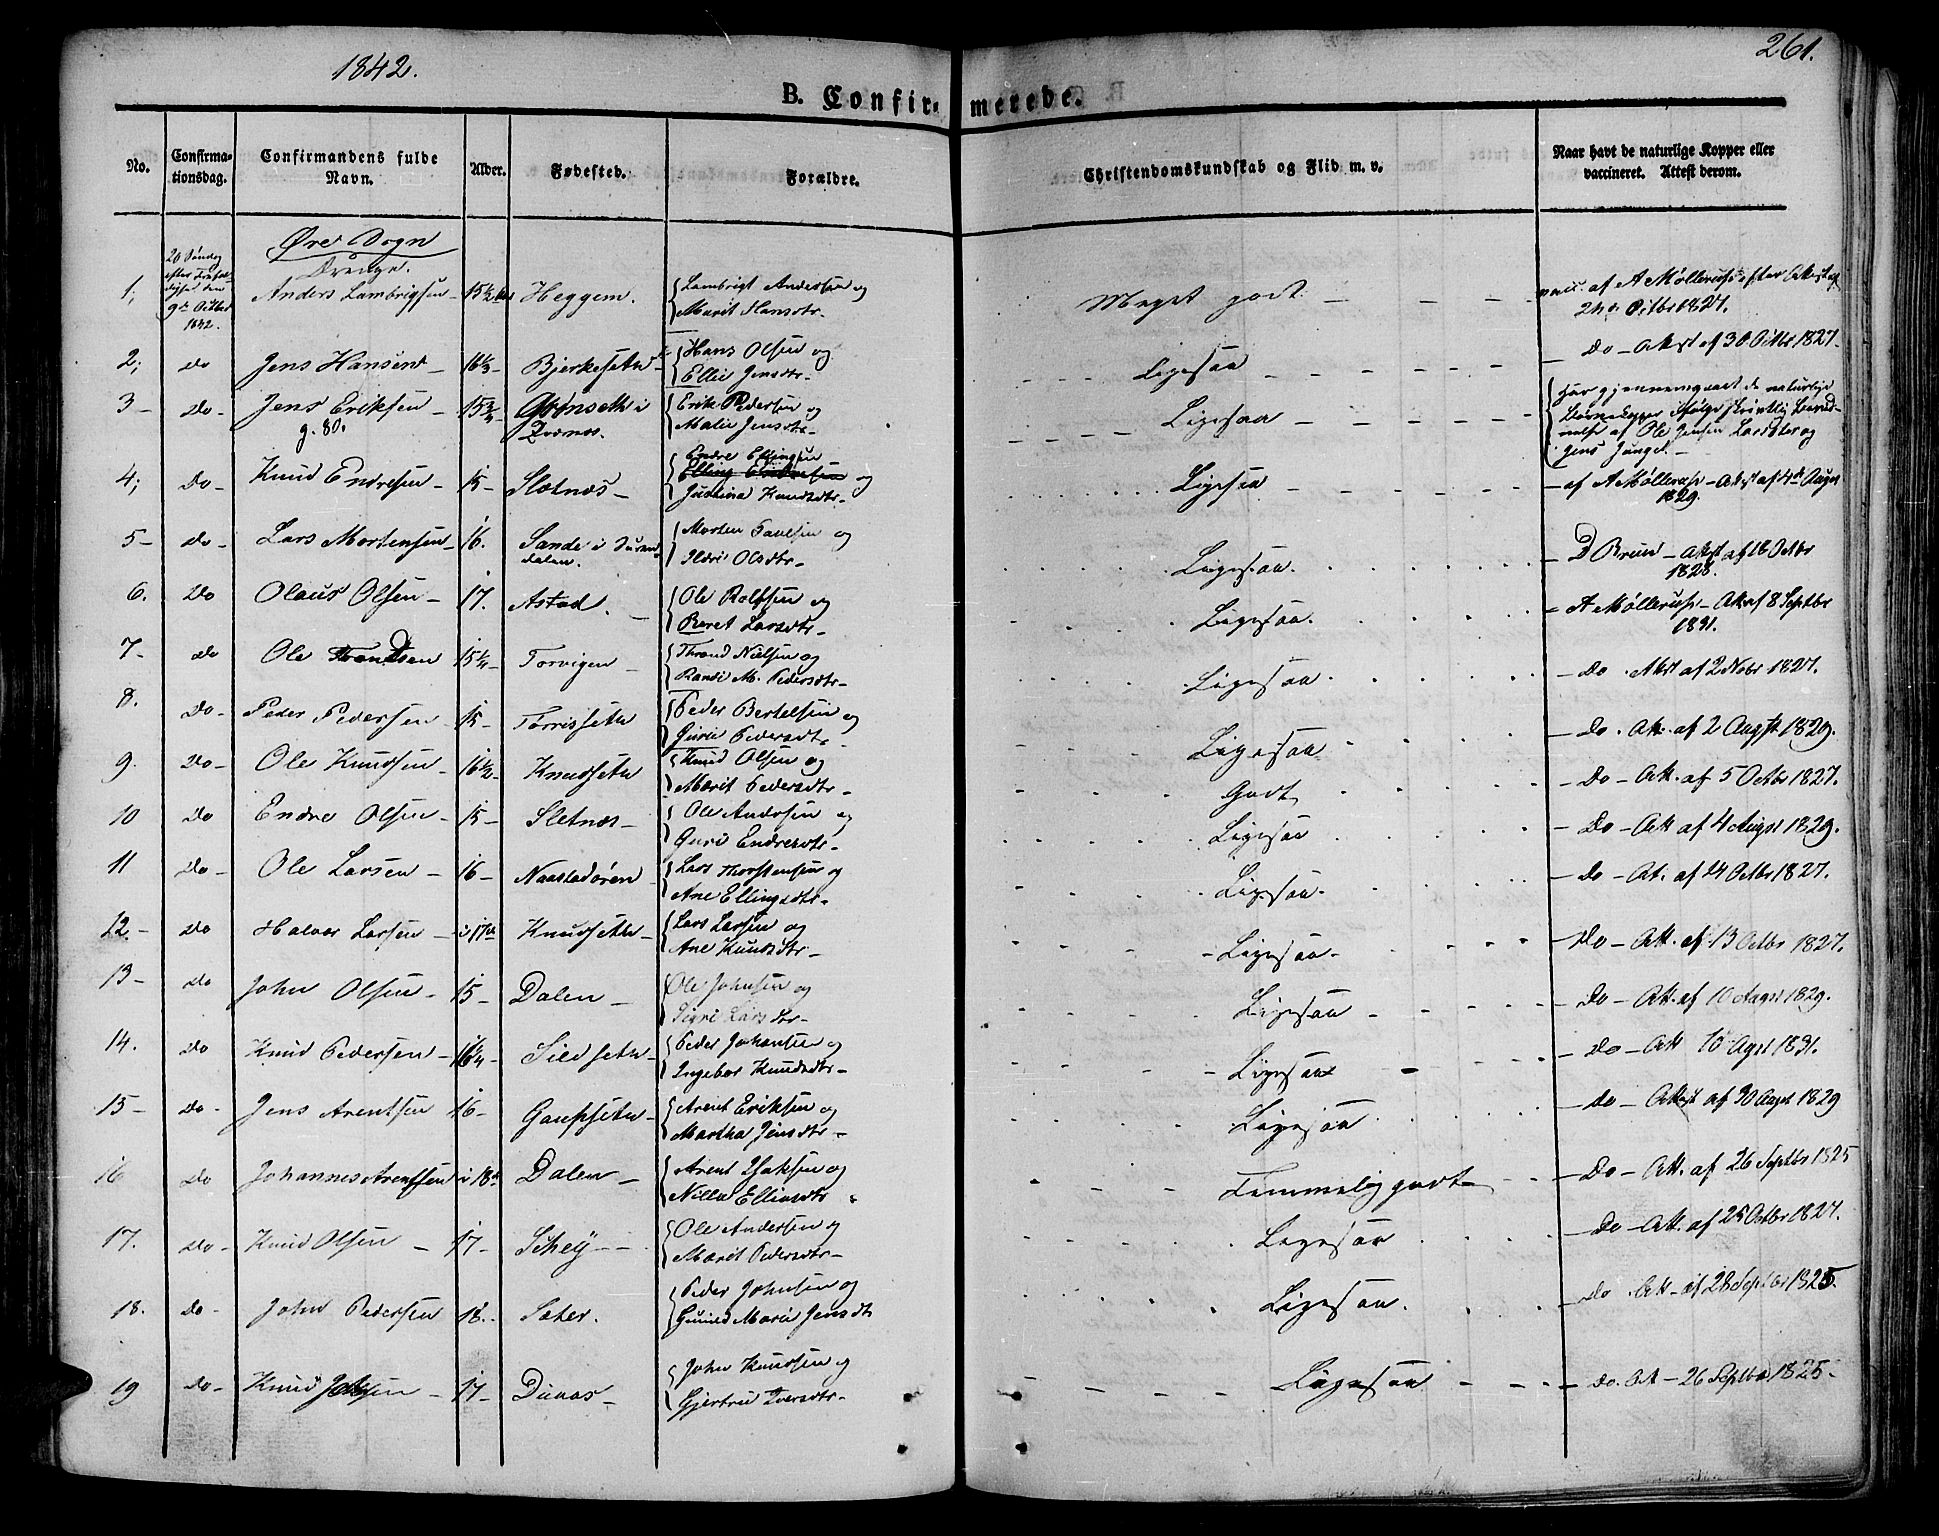 1842.
261.
B. Confirmerede.
No.
Confirmationsdag.
Confirmandens fulde Navn.
Alder.
Fødested.
Forældre.
Christendomskundskab og Flid m. v.
Naar havt de naturlige Kopper eller vaccineret. Attest derom.
Øre Sogn
Drenge.
1, 20 Søndag efter Trefoldighed den 9de Octbr 1842. Anders Lambrigtsen 15½ Heggem. Lambrigt Andersen og
Marit Hansdtr. Meget godt. af A Møllerup efter Attest af
Octbr 1827.
2, do Jens Hansen 16⅓ Bjerkesetn Hans Olsen og
Ellii Jensdtr. Ligesaa do Attst af 30 Octbr 1827.
3 do Jens Eriksen 15¾ Grønseth i Erik Pedersen og
g. 80. Tvernes. Malii Jensdtr. Ligesaa Har gjennemgaaet de naturlige
af Ole Jensen og
Jens
4, do Knud Endresen 15 Sletnæs Endre Ellingsen
Elling Endresen og
Knudsdtr. Ligesaa af A Møllerup Attst af 4de August
1829.
5 do Lars Mortensen 16. Sande i Surendalen. Morten Paulsen og
Ildri Olsdtr. Ligesaa. D Bruun Attst af 16 Octbr
1828.
6. do Olaus Olsen 17. Astad. Ole Rolfsen og
Beret Larsdtr. Ligesaa. A Møllerup Att af 8 Septbr
1831.
7 do Ole Trondsen 15¼ Torvigen Thrond Nielsen og
Randi M. Pedersdtr. Ligesaa. Do Attst af 2 Novbr 1827.
8. do Peder Pedersen 15 Torrissetn Peder Bertelsen og
Guri Pedersdtr. Ligesaa Do. Att. af 2 Augst 1829.
9. do Ole Knudsen 16½ Knudsetn Knud Olsen og
Marit Pedersdtr. Godt Do Att. af 5 Octbr 1827.
10 do Endre Olsen 15 Sletnæs Ole Andersen og
Guri Endresdtr. Ligesaa Do Att af 4 August 1829.
11 do Ole Larsen 16 Naastadøren Lars Thorstensen og
Ane Ellingsdtr. Ligesaa. Do Att. af 24 Octbr 1827.
12 do Halvor Larsen i 17de Knudsetn Lars Larsen og
Ane Knudsdtr. Ligesaa. Do Att. af 13 Octbr 1827.
13 do John Olsen 15 Dalen Ole Johnsen og
Sigri Larsdtr. Ligesaa Do Att. af 10 Augst 1829.
14. do Knud Pedersen 16¼ Sildsetn Peder Johansen og
Ingebor Knudsdtr. Ligesaa Do Att 10 Agst 1831.
15 do Jens Arentsen 16 Gaupsetn Arent Eriksen og
Martha Jensdtr. Ligesaa Do Attst af 30 Augst 1829
16 do Johannes Arentsen i 18de Dalen Arent Isaksen og
Nilla Ellingsdtr. Temmelig godt Do Att. af 26 Septbr 1825
17. do Knud Olsen 17 Schey Ole Andersen og
Marit Pedersdtr. Ligesaa Do Att. af 25 Octbr 1827.
18. do John Pedersen 18. Sæter. Peder Johnsen og
Gunild Marie Jensdtr Ligesaa. Do Att af 28 Septbr 1825.
19 do Knud Johnsen 17 Dunas John Knudsen og
Gjertru Iversdtr. Ligesaa Do. Att 26 Septbr 1825.